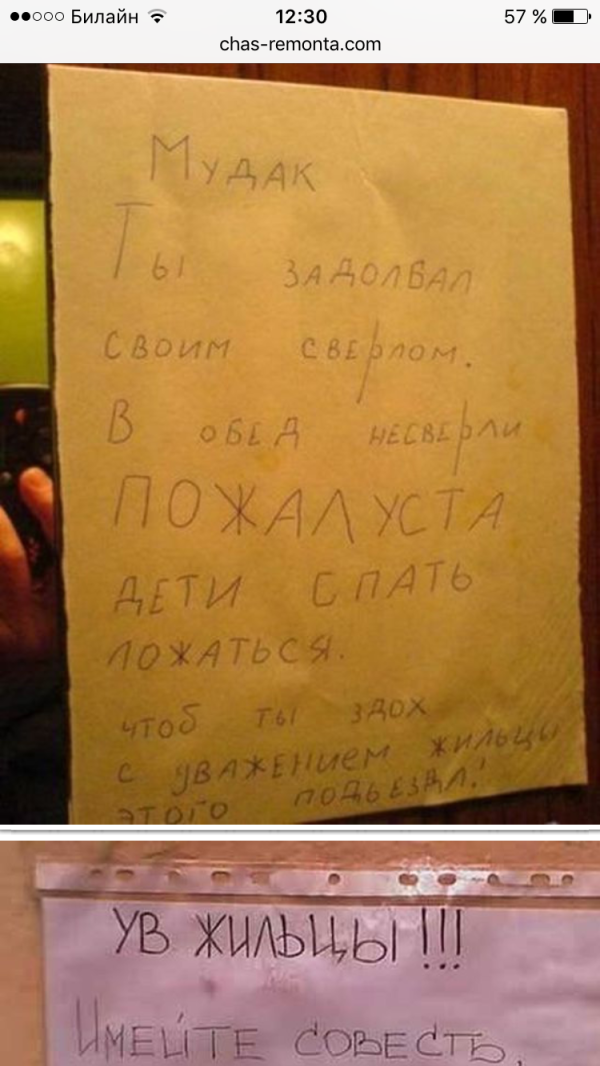 Билайн 12:30 57 %
chas-remonta.com
Мудак
Ты задолбал
своим сверлом.
В обед несверли
ПОЖАЛУСТА
дети спать
ложаться.
чтоб ты здох
с уважением жильцы
этого подьезда!
УВ ЖИЛЬЦЫ!!!
Имейте совесть.